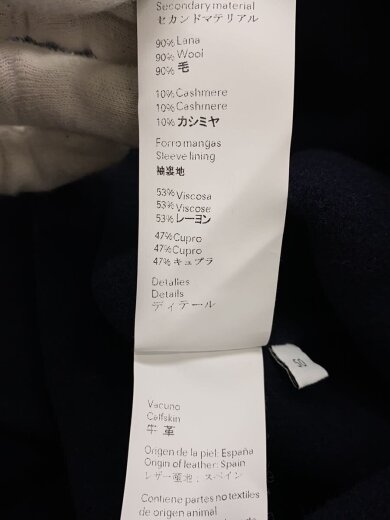 Secondary material
セカンドマテリアル
90% Lana
90% Wool
90% 毛
10% Cashmere
10% Cashmere
10% カシミヤ
Forro mangas
Sleeve lining
袖裏地
53% Viscosa
53% Viscose
53% レーヨン
47% Cupro
47% Cupro
47% キュプラ
Detalles
Details
ディテール
50
Vacuno
Calfskin
牛革
Origen de la piel: España
Origin of leather: Spain
レザー産地：スペイン
Contiene partes no textiles
de origen animal